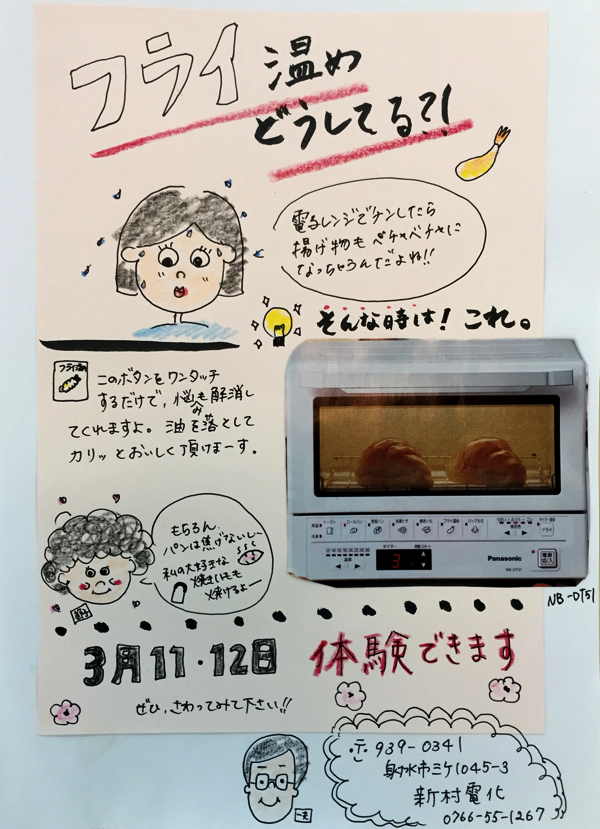 フライ温め
どうしてる?!
電子レンジでチンしたら
揚げ物もベチャベチャに
なっちゃうんだよね!!
そんな時は!これ。
フライ温め
このボタンをワンタッチ
するだけで、悩みも解消し
てくれますよ。油を落として
カリッとおいしく頂けまーす。
もちろん
パンは焦げないし〜
私の大好きな
焼きいもも
焼けるよー
Panasonic
NB-DT51
NB-DT51
3月11・12日 体験できます
ぜひ、さわってみて下さい!!
〒939-0341
射水市三ケ1045-3
新村電化
0766-55-1267